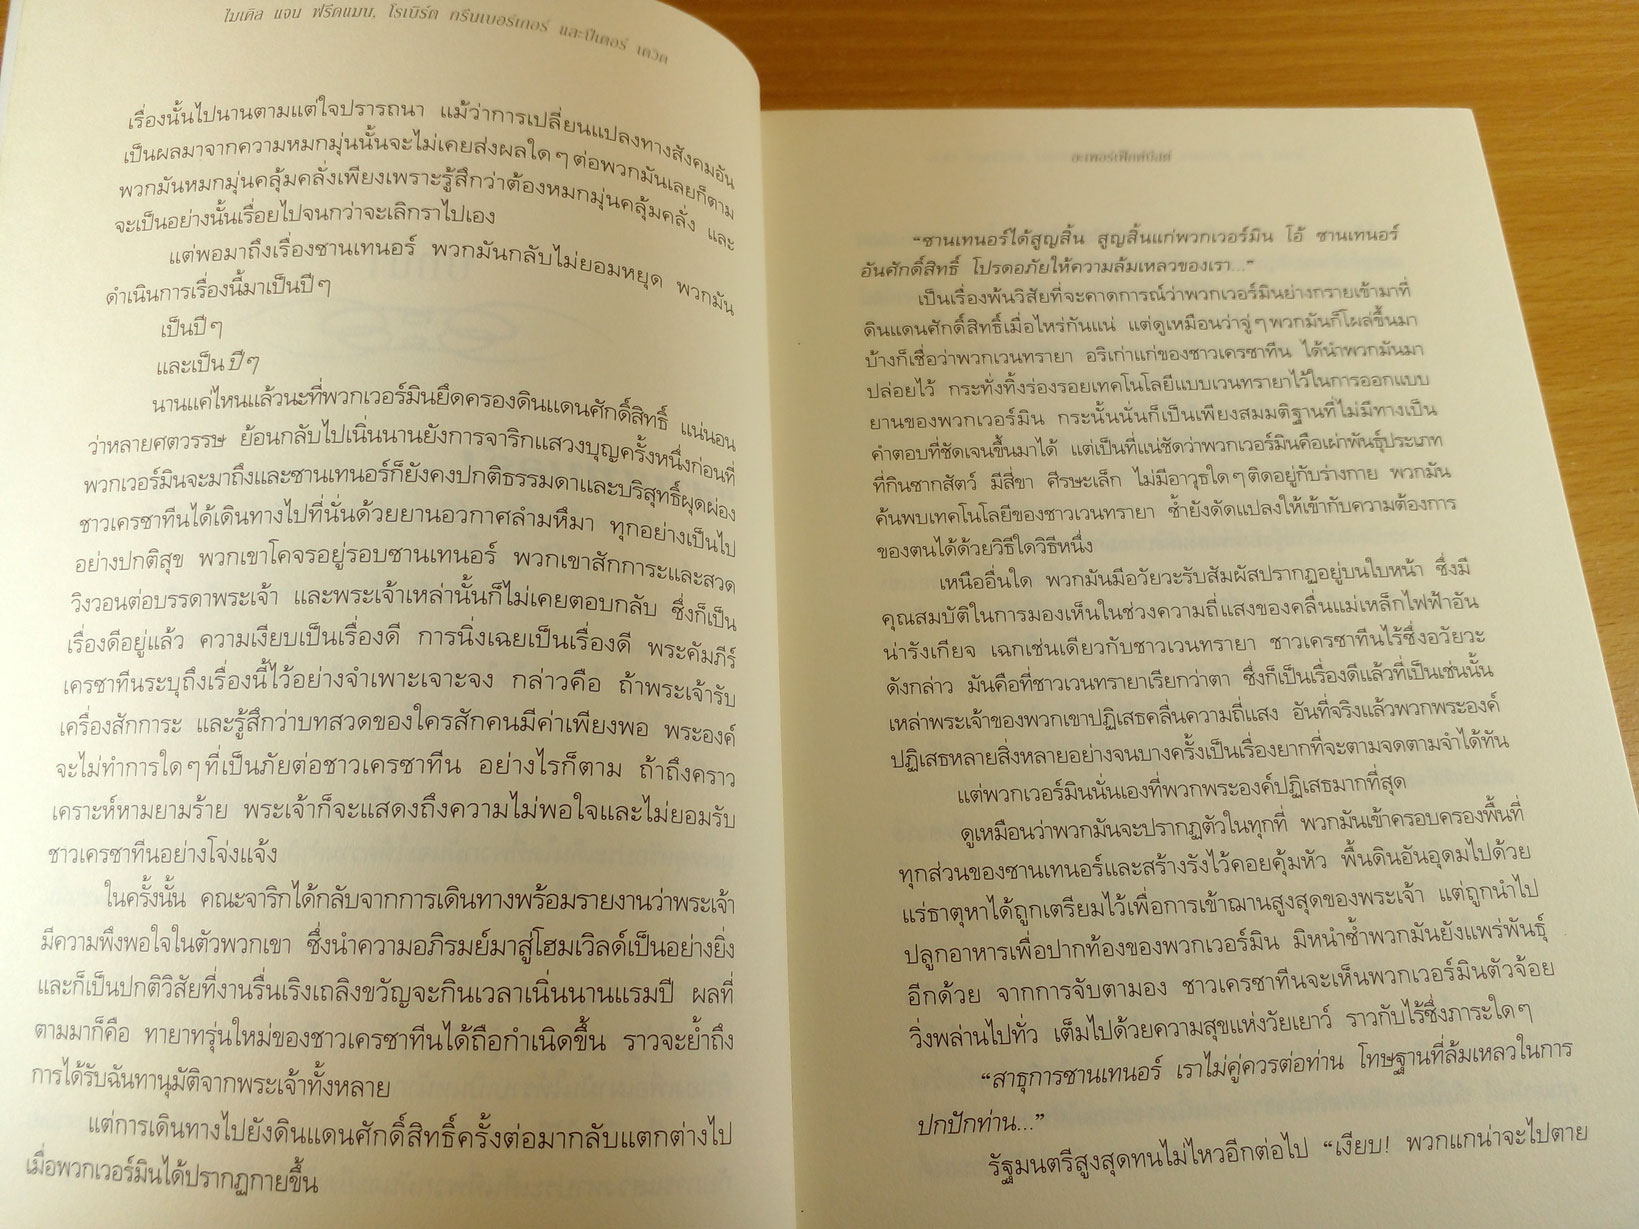 ไมเคิล แจน ฟรีดแมน, โรเบิร์ต กรีนเบอร์เกอร์ และปีเตอร์ เดวิด
เรื่องนั้นไปนานตามแต่ใจปรารถนา แม้ว่าการเปลี่ยนแปลงทางสังคมอัน
เป็นผลมาจากความหมกมุ่นนั้นจะไม่เคยส่งผลใดๆ ต่อพวกมันเลยก็ตาม
พวกมันหมกมุ่นคลุ้มคลั่งเพียงเพราะรู้สึกว่าต้องหมกมุ่นคลุ้มคลั่ง และ
จะเป็นอย่างนั้นเรื่อยไปจนกว่าจะเลิกราไปเอง
แต่พอมาถึงเรื่องซานเทนอร์ พวกมันกลับไม่ยอมหยุด พวกมัน
ดำเนินการเรื่องนี้มาเป็นปีๆ
เป็นปีๆ
และเป็นปีๆ
นานแค่ไหนแล้วนะที่พวกเวอร์มินยึดครองดินแดนศักดิ์สิทธิ์ แน่นอน
ว่าหลายศตวรรษ ย้อนกลับไปเนิ่นนานยังการจาริกแสวงบุญครั้งหนึ่งก่อนที่
พวกเวอร์มินจะมาถึงและซานเทนอร์ก็ยังคงปกติธรรมดาและบริสุทธิ์ผุดผ่อง
ชาวเครซาทีนได้เดินทางไปที่นั่นด้วยยานอวกาศลำมหึมา ทุกอย่างเป็นไป
อย่างปกติสุข พวกเขาโคจรอยู่รอบซานเทนอร์ พวกเขาสักการะและสวด
วิงวอนต่อบรรดาพระเจ้า และพระเจ้าเหล่านั้นก็ไม่เคยตอบกลับ ซึ่งก็เป็น
เรื่องดีอยู่แล้ว ความเงียบเป็นเรื่องดี การนิ่งเฉยเป็นเรื่องดี พระคัมภีร์
เครซาทีนระบุถึงเรื่องนี้ไว้อย่างจำเพาะเจาะจง กล่าวคือ ถ้าพระเจ้ารับ
เครื่องสักการะ และรู้สึกว่าบทสวดของใครสักคนมีค่าเพียงพอ พระองค์
จะไม่ทำการใดๆ ที่เป็นภัยต่อชาวเครซาทีน อย่างไรก็ตาม ถ้าถึงคราว
เคราะห์หามยามร้าย พระเจ้าก็จะแสดงถึงความไม่พอใจและไม่ยอมรับ
ชาวเครซาทีนอย่างโจ่งแจ้ง
ในครั้งนั้น คณะจาริกได้กลับจากการเดินทางพร้อมรายงานว่าพระเจ้า
มีความพึงพอใจในตัวพวกเขา ซึ่งนำความอภิรมย์มาสู่โฮมเวิลด์เป็นอย่างยิ่ง
และก็เป็นปกติวิสัยที่งานรื่นเริงเถลิงขวัญจะกินเวลาเนิ่นนานแรมปี ผลที่
ตามมาก็คือ ทายาทรุ่นใหม่ของชาวเครซาทีนได้ถือกำเนิดขึ้น ราวจะย้ำถึง
การได้รับฉันทานุมัติจากพระเจ้าทั้งหลาย
แต่การเดินทางไปยังดินแดนศักดิ์สิทธิ์ครั้งต่อมากลับแตกต่างไป
เมื่อพวกเวอร์มินได้ปรากฏกายขึ้น
อะเพอร์เฟ็กต์บีสต์
“ซานเทนอร์ได้สูญสิ้น สูญสิ้นแก่พวกเวอร์มิน โอ้ ซานเทนอร์
อันศักดิ์สิทธิ์ โปรดอภัยให้ความล้มเหลวของเรา...”
เป็นเรื่องพ้นวิสัยที่จะคาดการณ์ว่าพวกเวอร์มินย่างกรายเข้ามาที่
ดินแดนศักดิ์สิทธิ์เมื่อไหร่กันแน่ แต่ดูเหมือนว่าจู่ๆ พวกมันก็โผล่ขึ้นมา
บ้างก็เชื่อว่าพวกเวนทรายา อริเก่าแก่ของชาวเครซาทีน ได้นำพวกมันมา
ปล่อยไว้ กระทั่งทิ้งร่องรอยเทคโนโลยีแบบเวนทรายาไว้ในการออกแบบ
ยานของพวกเวอร์มิน กระนั้นนั่นก็เป็นเพียงสมมติฐานที่ไม่มีทางเป็น
คำตอบที่ชัดเจนขึ้นมาได้ แต่เป็นที่แน่ชัดว่าพวกเวอร์มินคือเผ่าพันธุ์ประเภท
ที่กินซากสัตว์ มีสี่ขา ศีรษะเล็ก ไม่มีอาวุธใดๆ ติดอยู่กับร่างกาย พวกมัน
ค้นพบเทคโนโลยีของชาวเวนทรายา ซ้ำยังดัดแปลงให้เข้ากับความต้องการ
ของตนได้ด้วยวิธีใดวิธีหนึ่ง
เหนืออื่นใด พวกมันมีอวัยวะรับสัมผัสปรากฏอยู่บนใบหน้า ซึ่งมี
คุณสมบัติในการมองเห็นในช่วงความถี่แสงของคลื่นแม่เหล็กไฟฟ้าอัน
น่ารังเกียจ เฉกเช่นเดียวกับชาวเวนทรายา ชาวเครซาทีนไร้ซึ่งอวัยวะ
ดังกล่าว มันคือที่ชาวเวนทรายาเรียกว่าตา ซึ่งก็เป็นเรื่องดีแล้วที่เป็นเช่นนั้น
เหล่าพระเจ้าของพวกเขาปฏิเสธคลื่นความถี่แสง อันที่จริงแล้วพวกพระองค์
ปฏิเสธหลายสิ่งหลายอย่างจนบางครั้งเป็นเรื่องยากที่จะตามจดตามจำได้ทัน
แต่พวกเวอร์มินนั่นเองที่พวกพระองค์ปฏิเสธมากที่สุด
ดูเหมือนว่าพวกมันจะปรากฏตัวในทุกที่ พวกมันเข้าครอบครองพื้นที่
ทุกส่วนของซานเทนอร์และสร้างรังไว้คอยคุ้มหัว พื้นดินอันอุดมไปด้วย
แร่ธาตุหาได้ถูกเตรียมไว้เพื่อการเข้าฌานสูงสุดของพระเจ้า แต่ถูกนำไป
ปลูกอาหารเพื่อปากท้องของพวกเวอร์มิน มิหนำซ้ำพวกมันยังแพร่พันธุ์
อีกด้วย จากการจับตามอง ชาวเครซาทีนจะเห็นพวกเวอร์มินตัวจ้อย
วิ่งพล่านไปทั่ว เต็มไปด้วยความสุขแห่งวัยเยาว์ ราวกับไร้ซึ่งภาระใดๆ
“สาธุการซานเทนอร์ เราไม่คู่ควรต่อท่าน โทษฐานที่ล้มเหลวในการ
ปกปักท่าน...”
รัฐมนตรีสูงสุดทนไม่ไหวอีกต่อไป “เงียบ! พวกแกน่าจะไปตาย